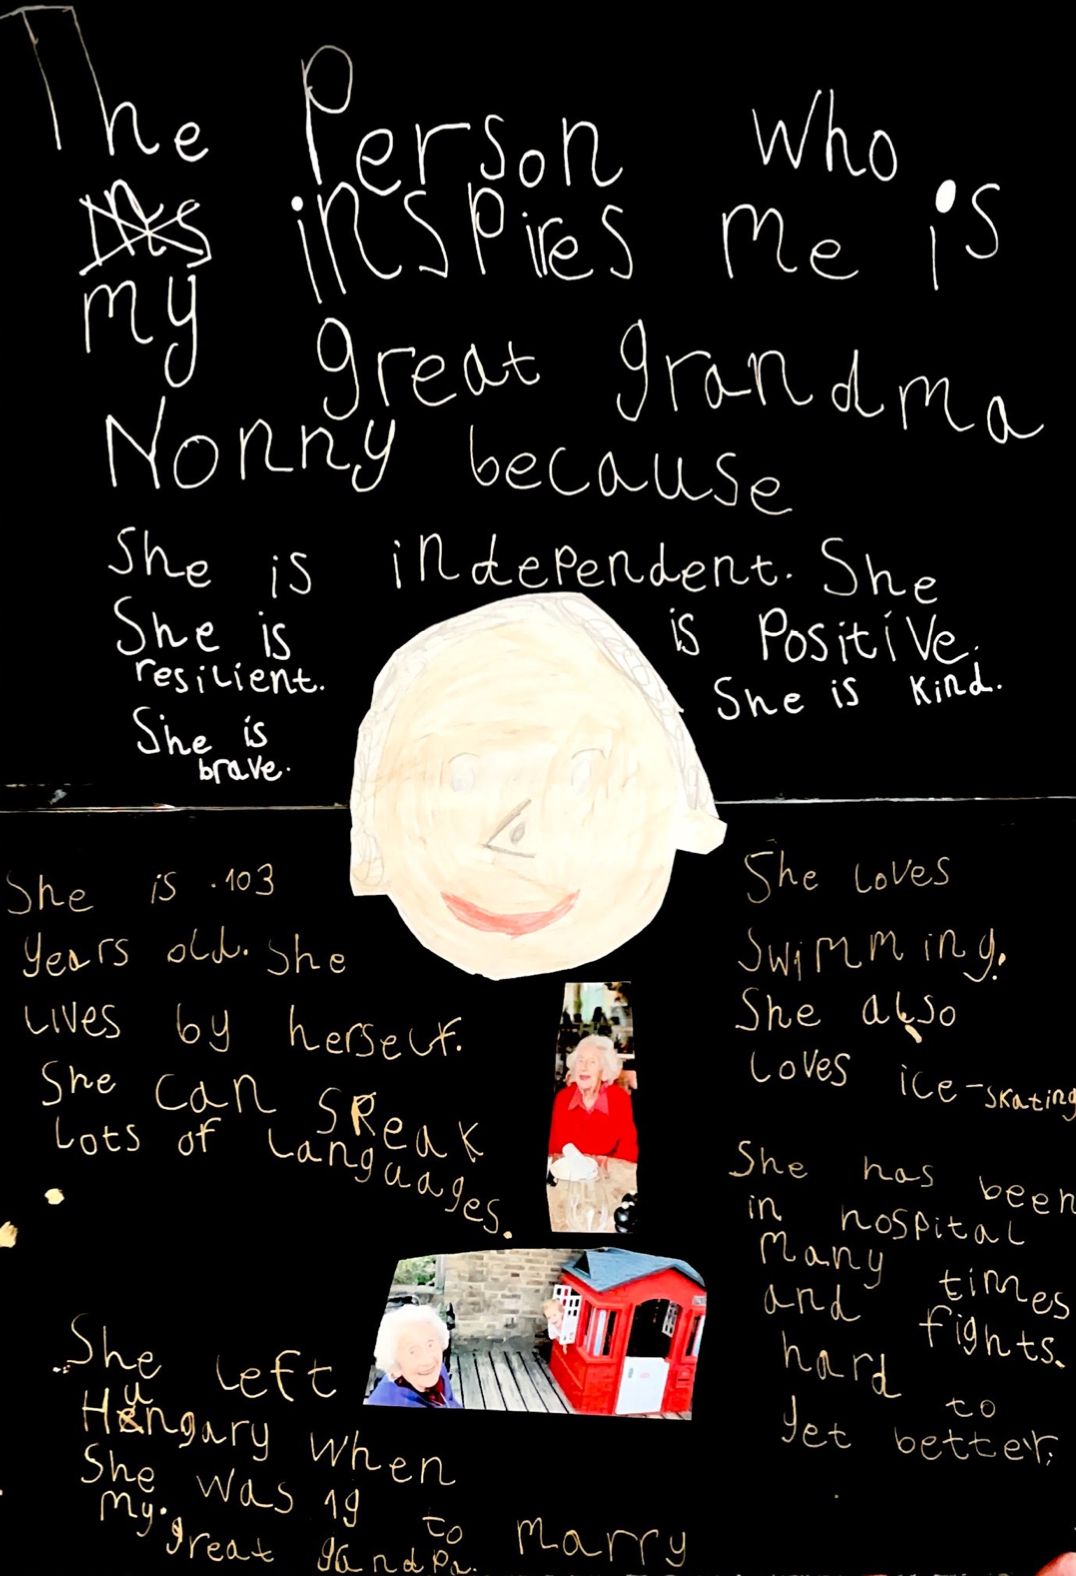 The Person who
inspires me is
my great grandma
Nonny because
She is independent. She
is Positive.
She is
resilient.
She is kind.
She is
brave.
She is .103
years old. She
lives by herself.
She can SPeak
lots of languages.
She loves
swimming.
She also
loves ice-skating
She has been
in hospital
many times
and fights.
hard to
get better.
She left
Hungary when
She was 19 to marry
my great gandpa.